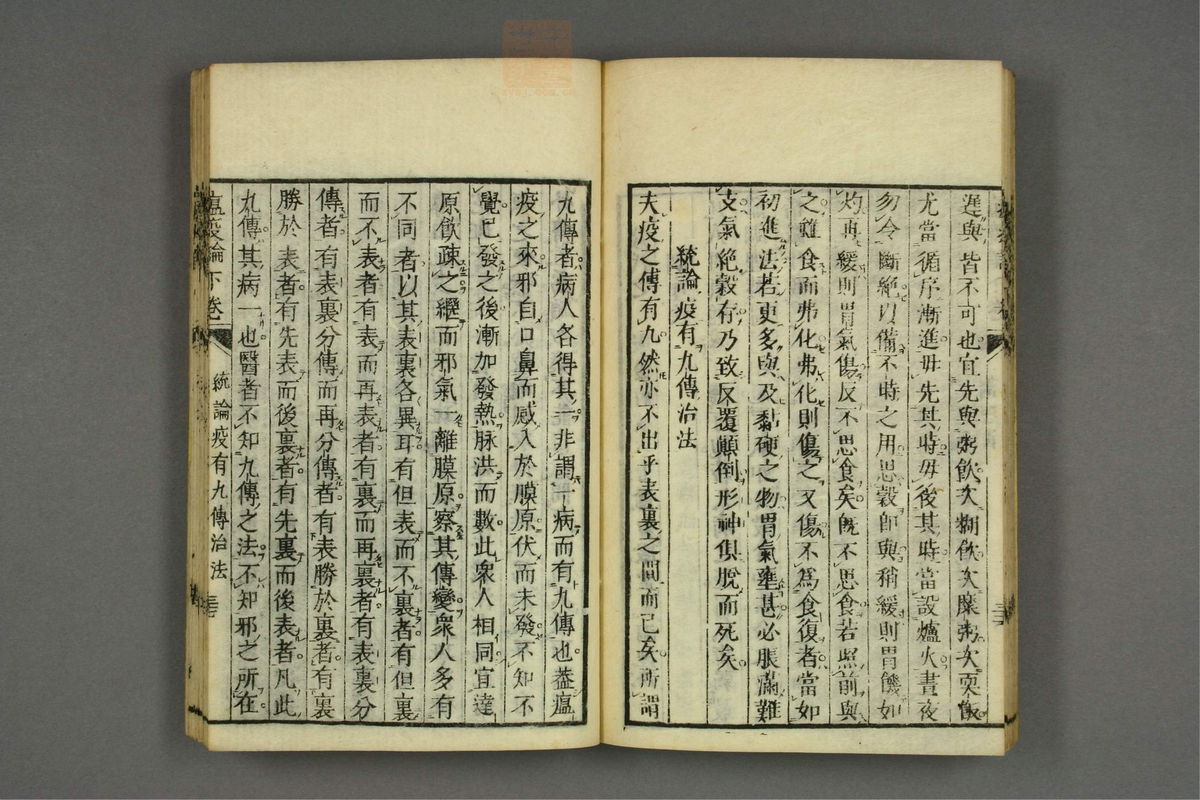 遲與皆不可也宜先與粥飲次糊飲次糜粥次耎飯
尤當循序漸進毋先其時毋後其時當設爐火晝夜
勿令斷絕以備不時之用思穀卽與稍緩則胃饑如
灼再緩則胃氣傷反不思食矣旣不思食若照前與
之雖食而弗化弗化則傷之又傷不爲食復者當如
初進法若更多與及黏硬之物胃氣壅甚必脹滿難
支氣絕穀存乃致反覆顚倒形神俱脫而死矣
統論疫有九傳治法
夫疫之傳有九然亦不出乎表裏之間而已矣所謂
九傳者病人各得其一非謂一病而有九傳也葢瘟
疫之來邪自口鼻而感入於膜原伏而未發不知不
覺已發之後漸加發熱脉洪而數此衆人相同宜達
原飲疎之繼而邪氣一離膜原察其傳變衆人多有
不同者以其表裏各異耳有但表而不裏者有但裏
而不表者有表而再表者有裏而再裏者有表裏分
傳者有表裏分傳而再分傳者有表勝於裏者有裏
勝於表者有先表而後裏者有先裏而後表者凡此
九傳其病一也醫者不知九傳之法不知邪之所在
瘟疫論下卷 統論疫有九傳治法